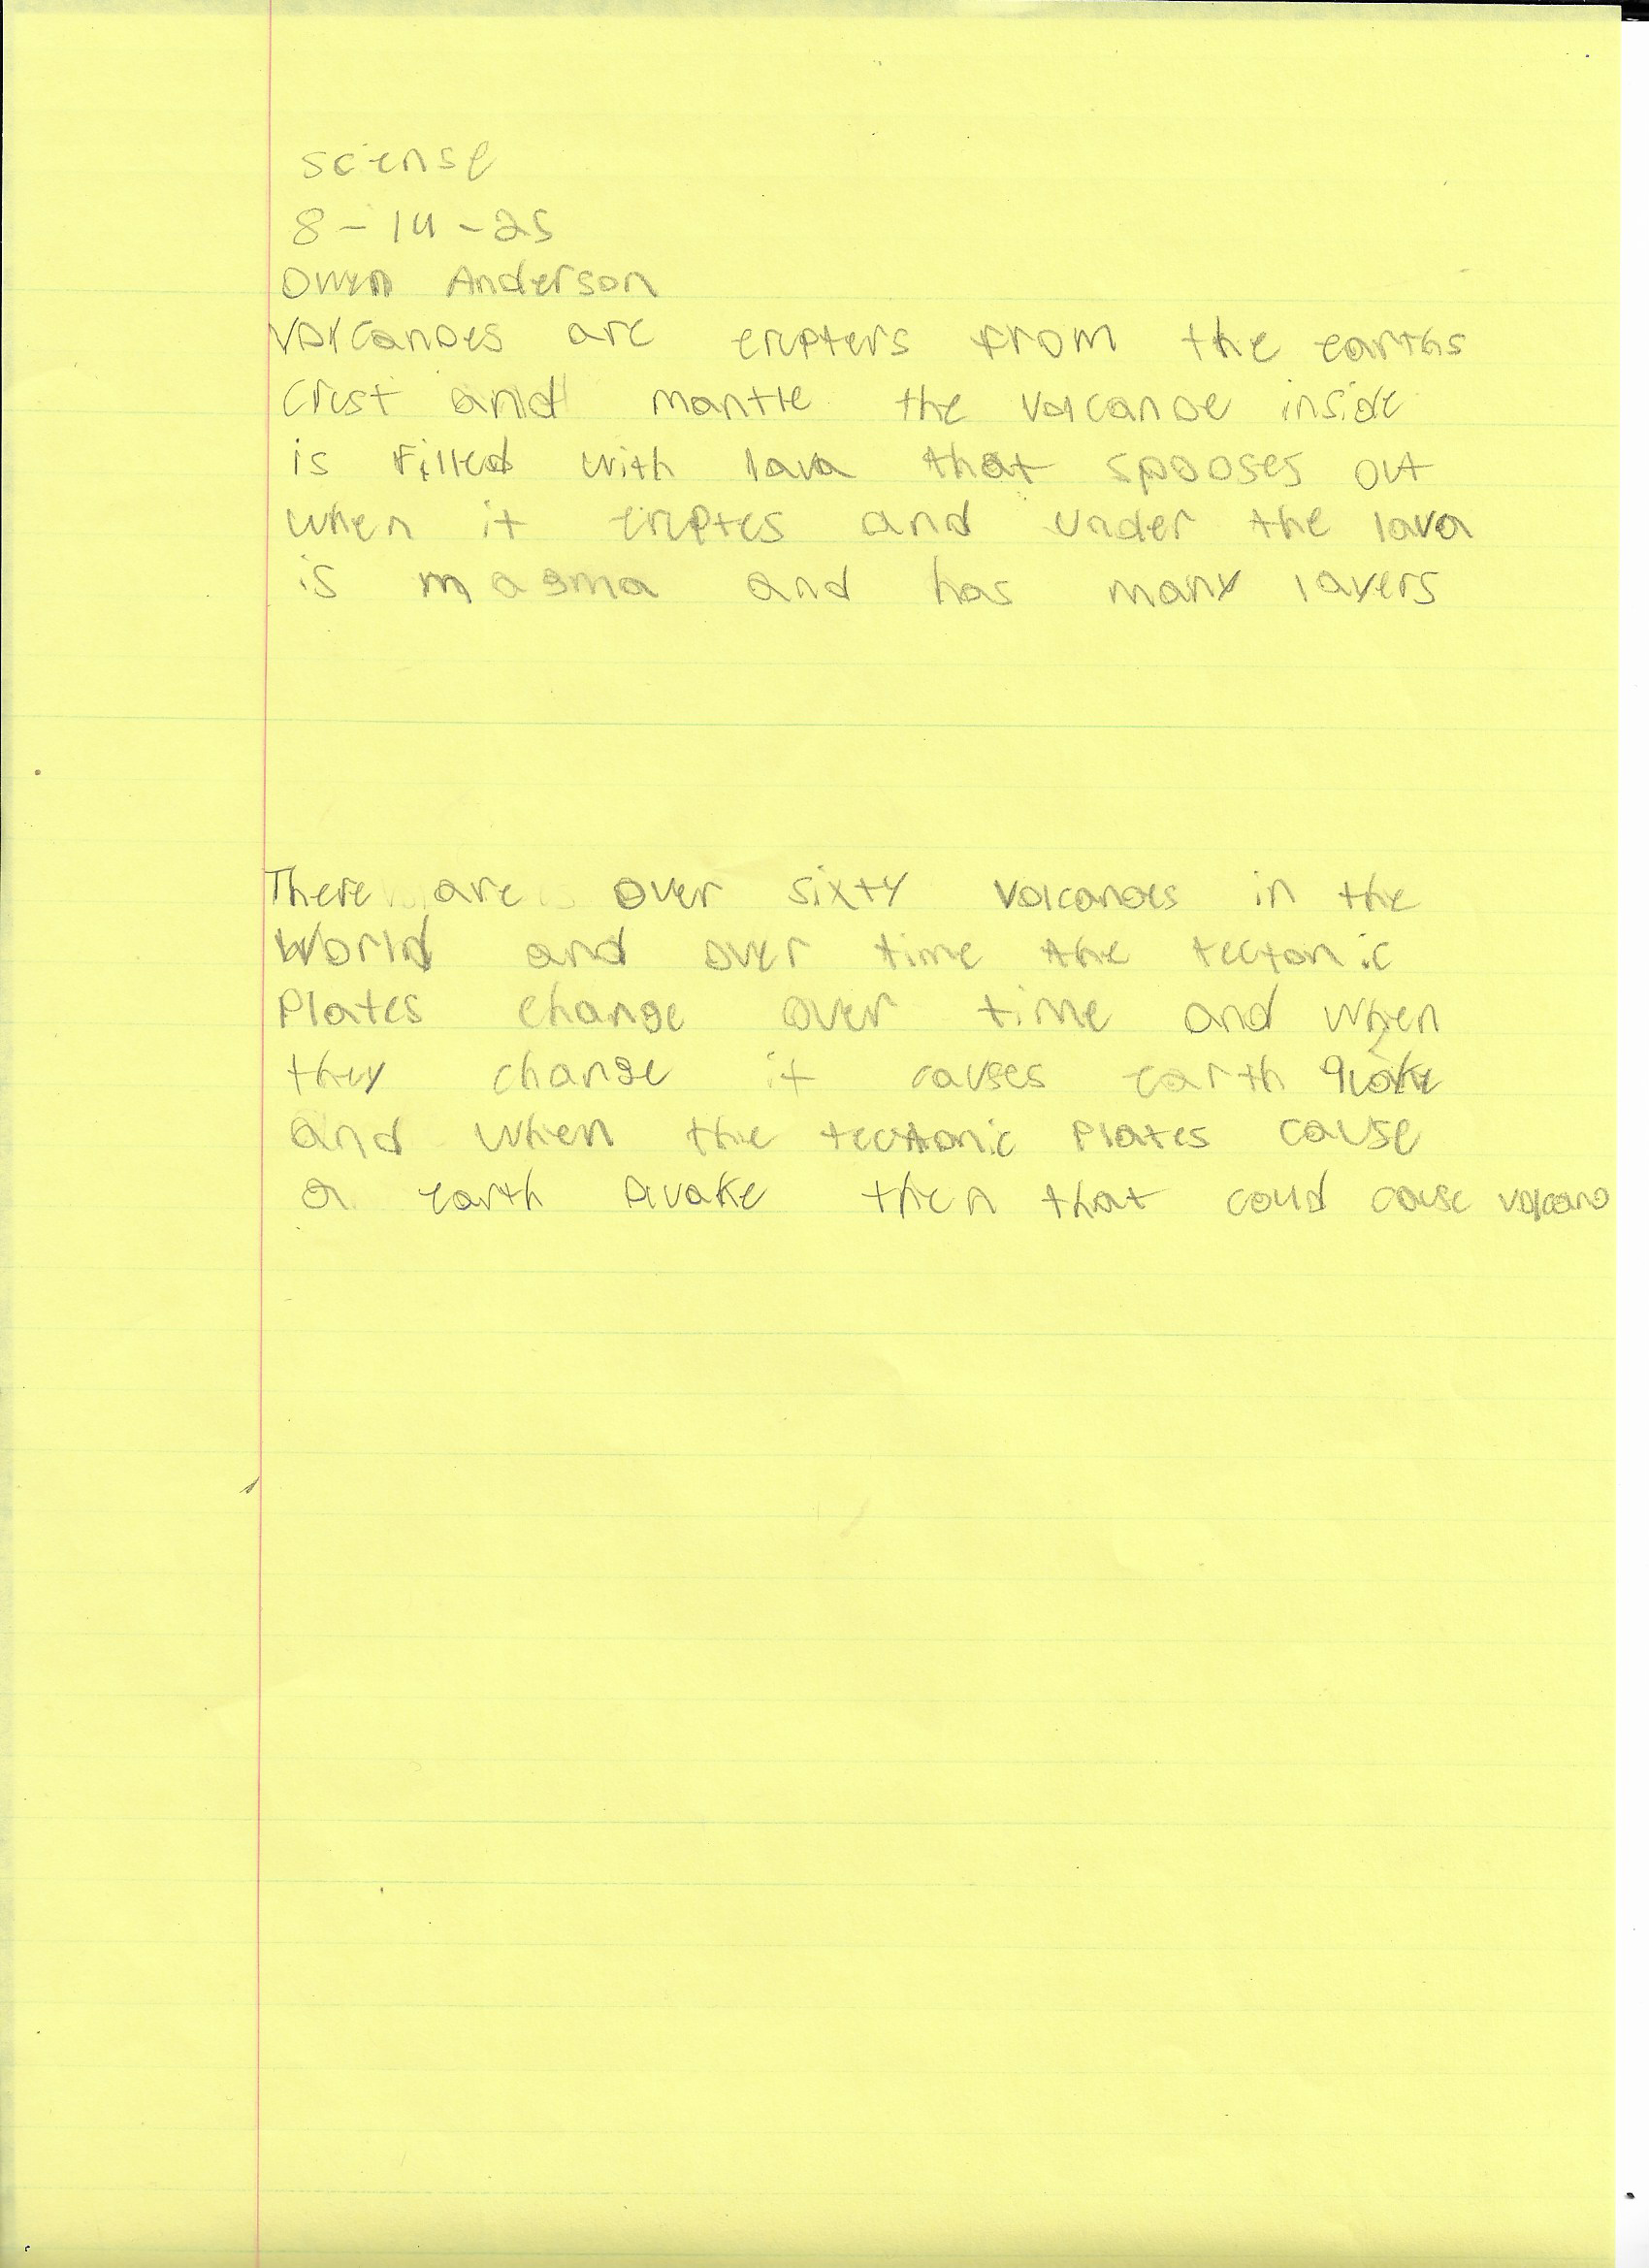 sciense
8-14-25
Owen Anderson
Volcanoes are erupters from the earths
Crust and mantle the volcanoe inside
is filled with lava that spooses out
when it eruptes and under the lava
is magma and has many layers
There are over sixty volcanoes in the
World and over time the tectonic
Plates change over time and when
they change it causes earth quake
and when the tectonic plates cause
a earth quake then that could cause volcano